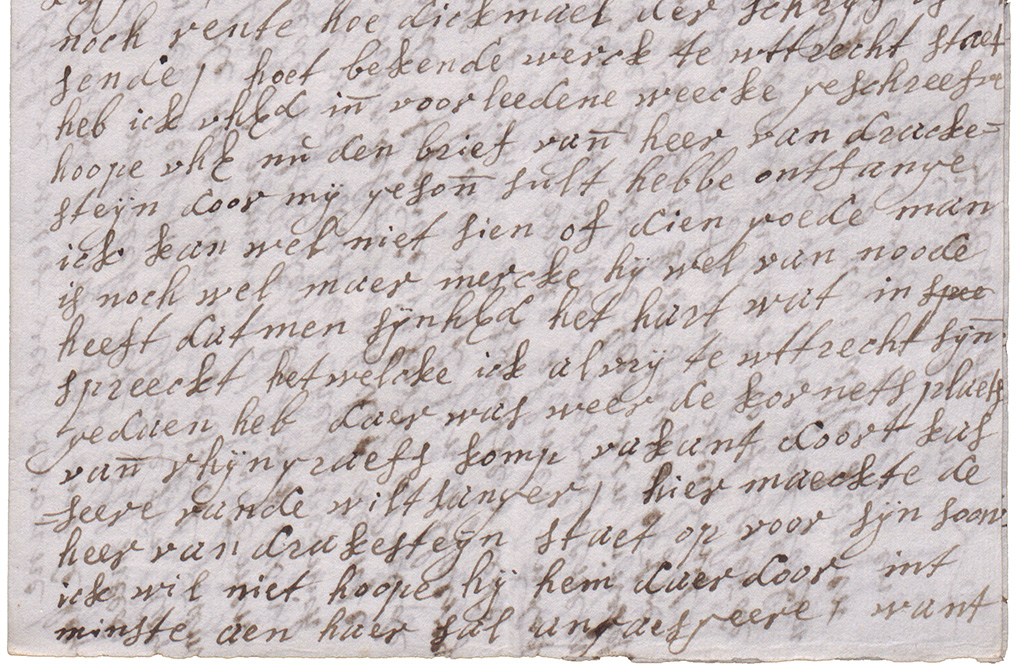 noch rente hoe dickmael der schryf of
sende / hoet bekende werck te wttrecht staet
heb ick uhEd in̄ voorleedene weecke geschreefn
hoope uhE nu den brief van̄ heer van dracke=
steyn door mij geson̄ sult hebbe ontfange
ick kan wel niet sien of dien goede man
is noch wel maer mercke hij wel van noode
heeft datmen synhEd het hart wat in spee
spreeckt hetwelcke ick alrij te wttrecht syn̄
gedaen heb daer was weer de kornets plaets
van̄ rhijngraefs komp vakant doort kas
=seere vande wiltfanger / hier maeckte de
heer van drakesteyn staet op voor syn soon
ick wil niet hoope hij hem daerdoor int
minste aen haer sal angaesgeere / want